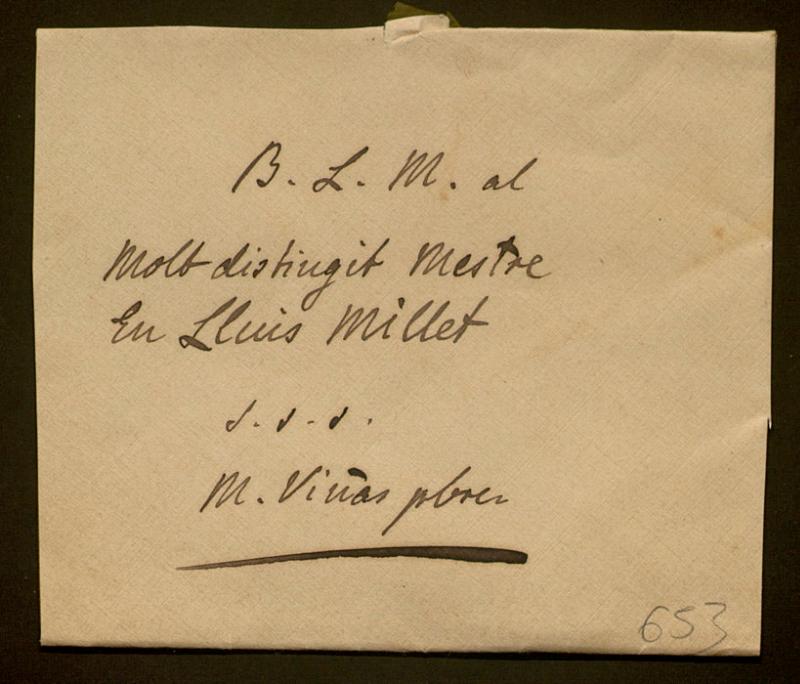 B. L. M. al
Molt distingit Mestre
En Lluis Millet
s. s. s.
M. Viñas pbre
653